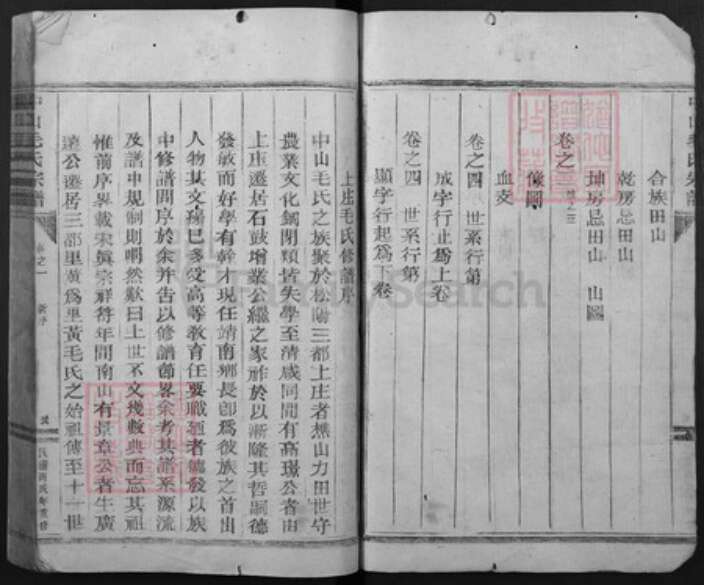 中山毛氏宗譜
合族田山
乾房忌田山
坤房忌田山 山圖
卷之
像圖
血支
卷之四 世系行第
成字行止爲上卷
卷之四 世系行第
顯字行起爲下卷
上庄毛氏修譜序
中山毛氏之族聚於松陽三都上庄者樵山力田世守
農業文化錮閉類皆失學至清咸同間有高璟公者由
上庄遷居石鼓增業公繼之家祚於以漸隆其哲嗣德
發敏而好學有幹才現任靖南鄉長卽爲彼族之首出
人物其文瑞已多受高等教育任要職迺者德發以族
中修譜問序於余并告以修譜節畧余考其譜系源流
及譜中規制則喟然歎曰上世不文幾數典而忘其祖
惟前序畧載宋眞宗祥符年間南山有景章公者生廣
遠公遷居三都里黃爲里黃毛氏之始祖傳至十一世
中山毛氏宗譜
卷之一
新序
民國丙戌年重修
FamilySearch